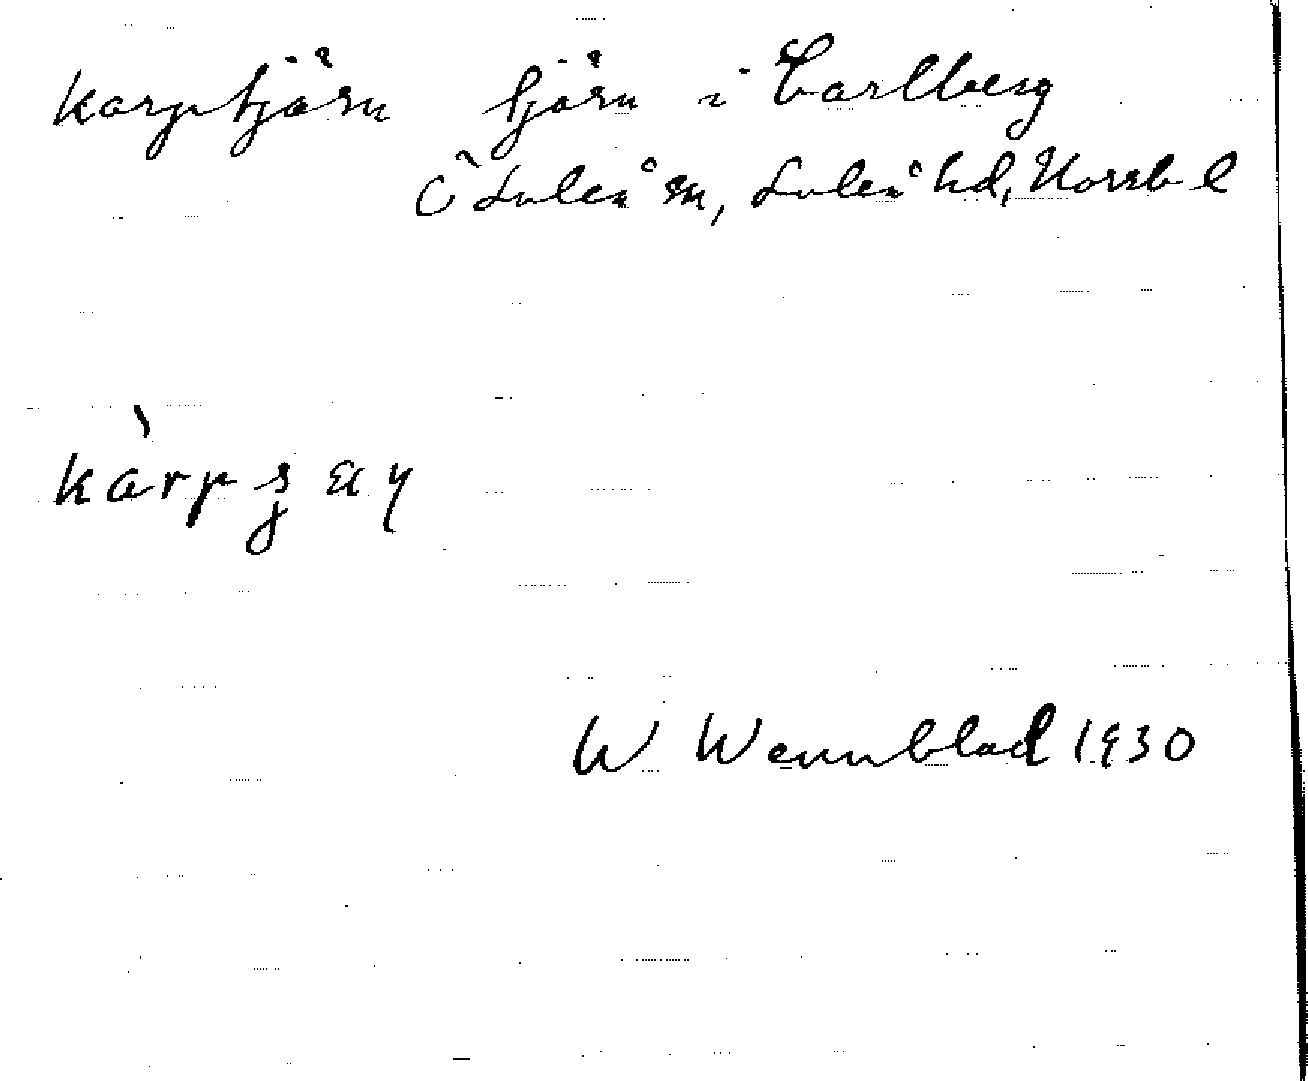 Karptjärn tjärn i Carlberg
Ö Luleå sn, Luleå hd, Norrb l
kàrp
W Wennblad 1930